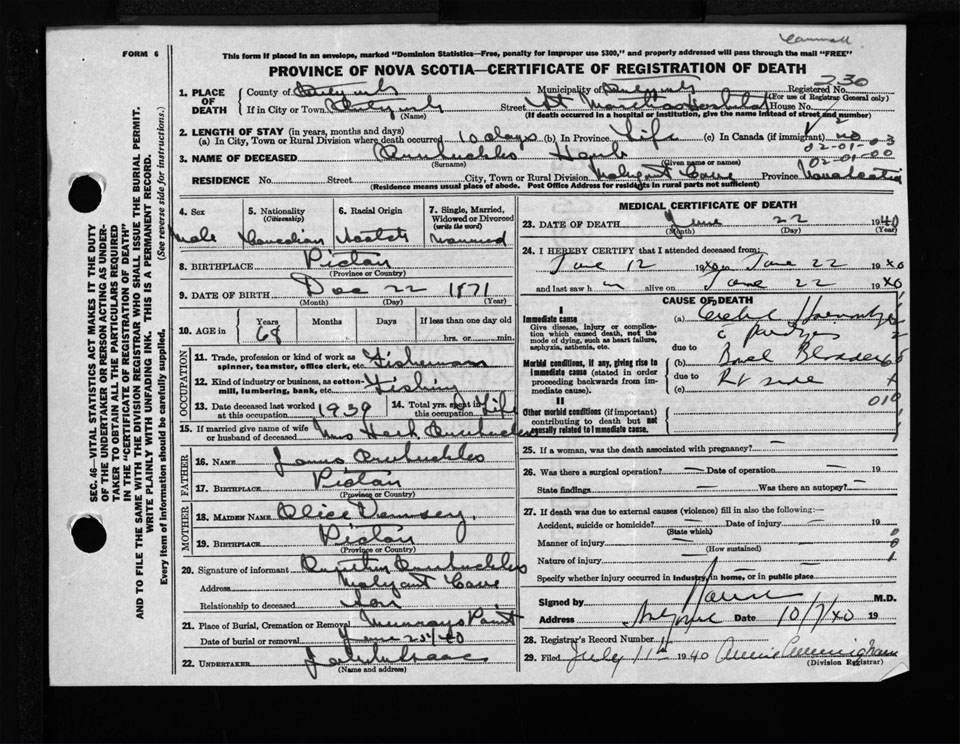 FORM 6
This form if placed in an envelope, marked "Dominion Statistics—Free, penalty for improper use $300," and properly addressed will pass through the mail "FREE"
PROVINCE OF NOVA SCOTIA—CERTIFICATE OF REGISTRATION OF DEATH
230
1. PLACE OF DEATH
County of
Municipality of
Registered No.
(For use of Registrar General only)
If in City or Town
(Name)
Street St Marthas Hospital House No.
(If death occurred in a hospital or institution, give the name instead of street and number)
2. LENGTH OF STAY (in years, months and days)
(a) In City, Town or Rural Division where death occurred 10 days (b) In Province Life (c) In Canada (if immigrant) no
02-01-03
3. NAME OF DECEASED Arbuckles Herb
(Surname) (Given name or names)
02-01-00
RESIDENCE No. Street City, Town or Rural Division Malagant Cove Province Nova Scotia
(Residence means usual place of abode. Post Office Address for residents in rural parts not sufficient)
4. Sex Male
5. Nationality (Citizenship) Canadian
6. Racial Origin Scotch
7. Single, Married, Widowed or Divorced (write the word) Married
8. BIRTHPLACE Pictou
(Province or Country)
9. DATE OF BIRTH Dec 22 1871
(Month) (Day) (Year)
10. AGE in Years 68 Months Days If less than one day old hrs. or min.
OCCUPATION
11. Trade, profession or kind of work as spinner, teamster, office clerk, etc. Fisherman
12. Kind of industry or business, as cotton-mill, lumbering, bank, etc. Fishing
13. Date deceased last worked at this occupation 1939
14. Total yrs. spent in this occupation Life
15. If married give name of wife or husband of deceased Mrs Herb Arbuckles
FATHER
16. NAME James Arbuckles
17. BIRTHPLACE Pictou
(Province or Country)
MOTHER
18. MAIDEN NAME Alice
19. BIRTHPLACE Pictou
(Province or Country)
20. Signature of informant Arbuckles
Address Malagant Cove
Relationship to deceased Son
21. Place of Burial, Cremation or Removal Murrays Point
Date of burial or removal June 40
22. UNDERTAKER
(Name and address)
MEDICAL CERTIFICATE OF DEATH
23. DATE OF DEATH June 22 1940
(Month) (Day) (Year)
24. I HEREBY CERTIFY that I attended deceased from:
June 12 1940 to June 22 1940
and last saw him alive on June 22 1940
CAUSE OF DEATH
I
Immediate cause
Give disease, injury or complication which caused death, not the mode of dying, such as heart failure, asphyxia, asthenia, etc.
(a) Cerebral
due to
Morbid conditions, if any, giving rise to immediate cause (stated in order proceeding backwards from immediate cause).
(b)
due to Rt side
(c)
II
Other morbid conditions (if important) contributing to death but not causally related to immediate cause.
25. If a woman, was the death associated with pregnancy? —
26. Was there a surgical operation? — Date of operation — 19
State findings Was there an autopsy? —
27. If death was due to external causes (violence) fill in also the following:—
Accident, suicide or homicide? — Date of injury — 19
(State which)
Manner of injury
(How sustained)
Nature of injury
Specify whether injury occurred in industry, in home, or in public place
Signed by M.D.
Address Date 10/7/40 19
28. Registrar's Record Number
29. Filed July 11th 1940 Annie Cunningham
(Division Registrar)
SEC. 46—VITAL STATISTICS ACT MAKES IT THE DUTY
OF THE UNDERTAKER OR PERSON ACTING AS UNDER-
TAKER TO OBTAIN ALL THE PARTICULARS REQUIRED
IN THE "CERTIFICATE OF REGISTRATION OF DEATH"
AND TO FILE THE SAME WITH THE DIVISION REGISTRAR WHO SHALL ISSUE THE BURIAL PERMIT.
WRITE PLAINLY WITH UNFADING INK. THIS IS A PERMANENT RECORD.
Every item of information should be carefully supplied. (See reverse side for instructions.)